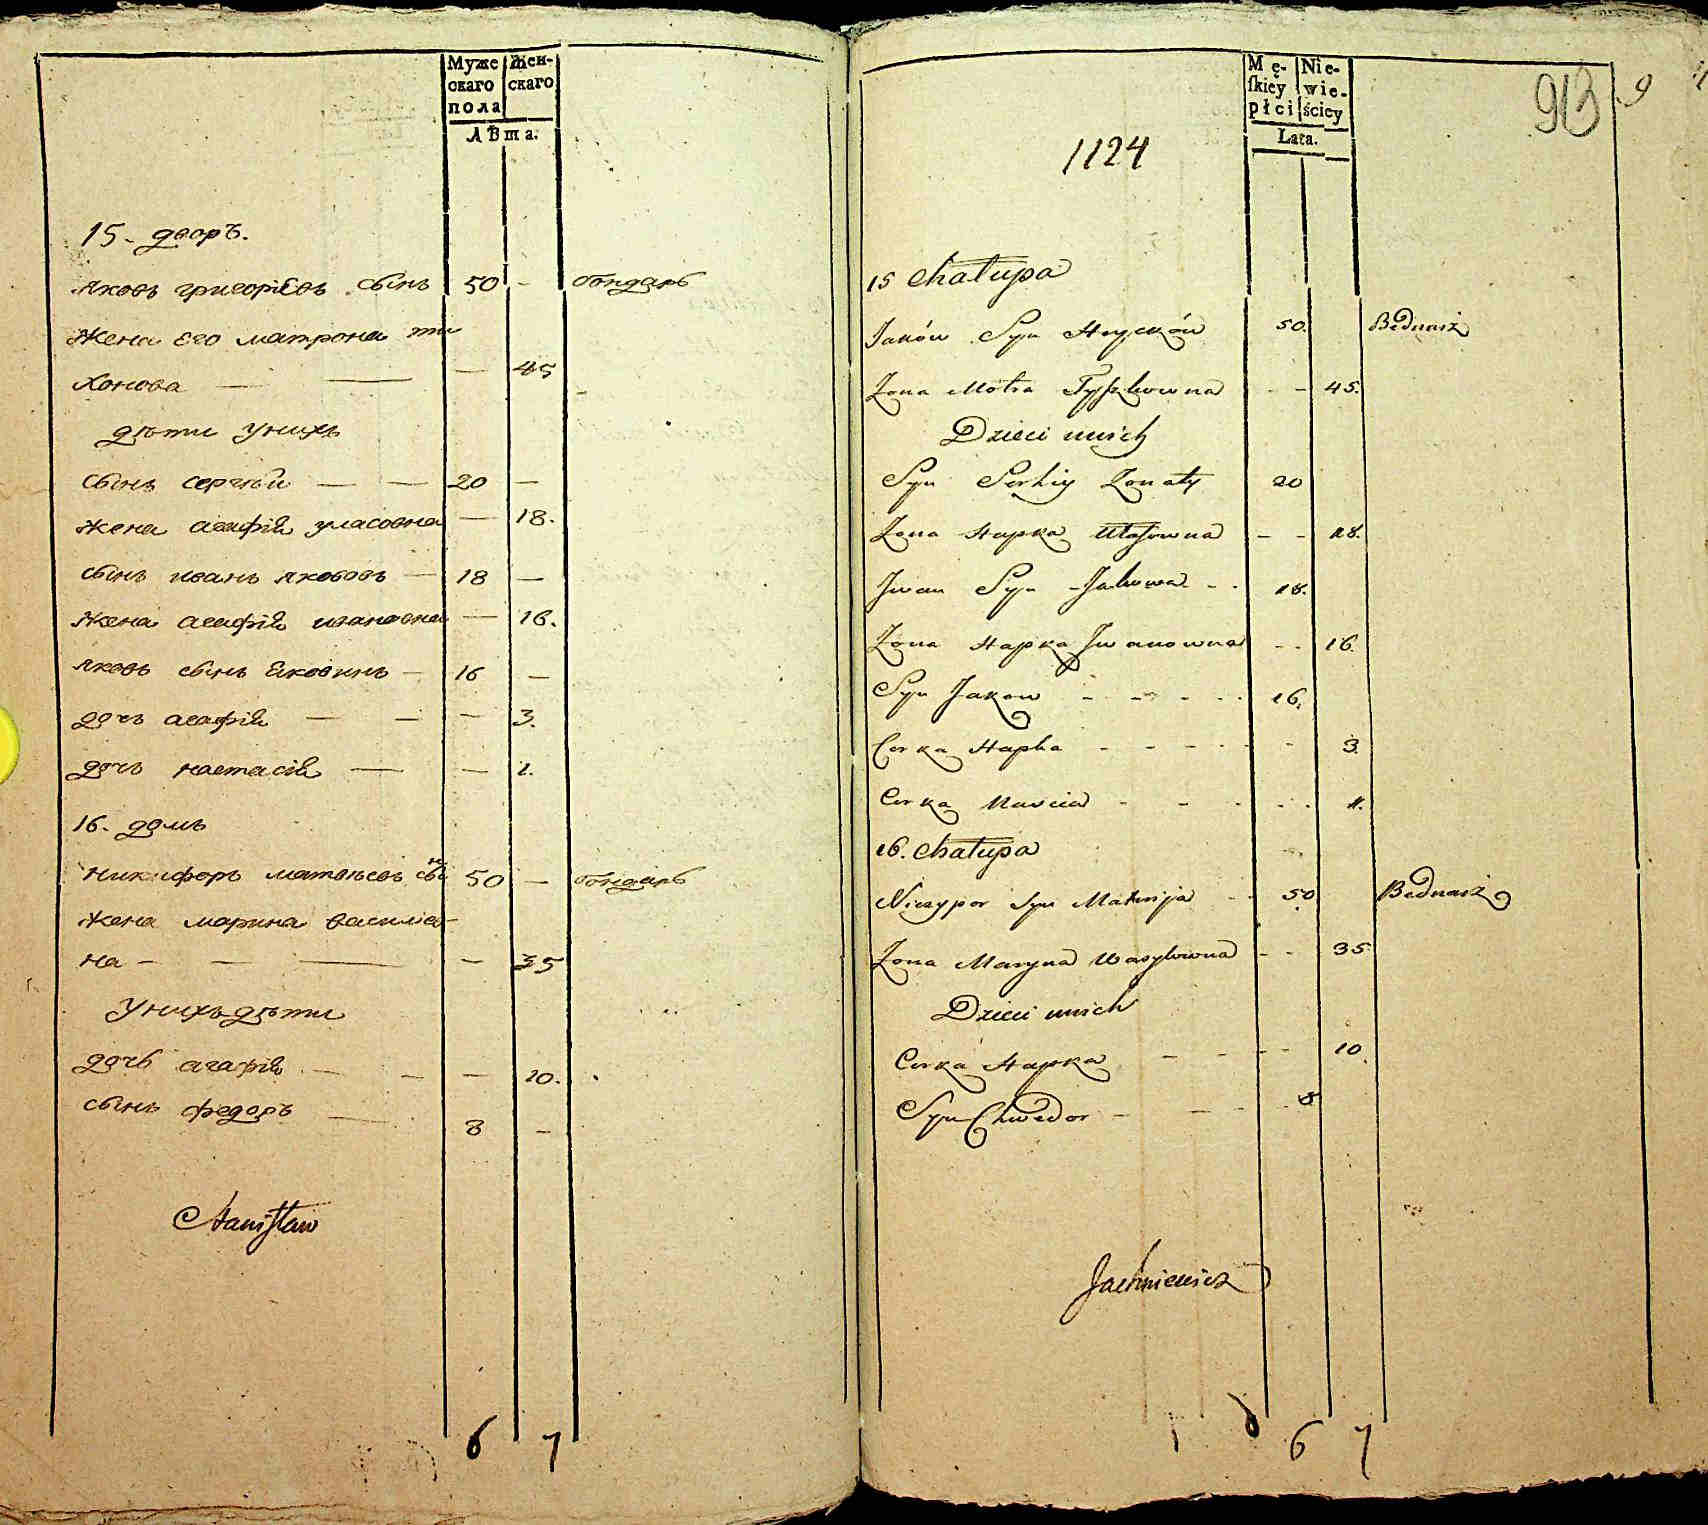 Муже
скаго
пола
Жен-
скаго
Лѣта.
15. дворъ.
яковъ григориевъ сынъ 50 - бондарь
жена его матрона ти
хонова — — — 45
дѣти унихъ
сынъ сергѣй — — 20 —
жена агафiя уласовна — 18.
сынъ иванъ якововъ — 18 —
жена агафiя ивановна — 16.
яковъ сынъ яковинъ — 16 —
дочъ агафiя — — — 3.
дочъ настасiя — — 1.
16. домъ
никифоръ матвѣевъ сынъ 50 — бондарь
жена марина василиев-
на — — — — 35
унихъ дѣти
дочь агафiя — — — 10.
сынъ федоръ — 8 —
Stanisław
6 7
Mę-
skiey
płci
Nie-
wie-
ściey
Lata.
913
9
1124
15 Chałupa
Jaków Syn Hryćków 50. Bednarż
Żona Motra Tyszkowna - - 45.
Dzieci unich
Syn Serhiy Żonaty 20
Żona Hapka Ułasowna - - 18.
Jwan Syn Jakowa - - 18.
Żona Hapka Jwanowna - - 16.
Syn Jakow - - - - 16.
Corka Hapka - - - - - 3.
Corka Nascia - - - - - 1.
16. Chałupa
Niczypor Syn Matwija - - 50 Bednarż
Żona Maryna Wasylowna - - 35
Dzieci unich
Corka Hapka - - - - 10.
Syn Chwedor - - - 8
Jachniewicz
6 7